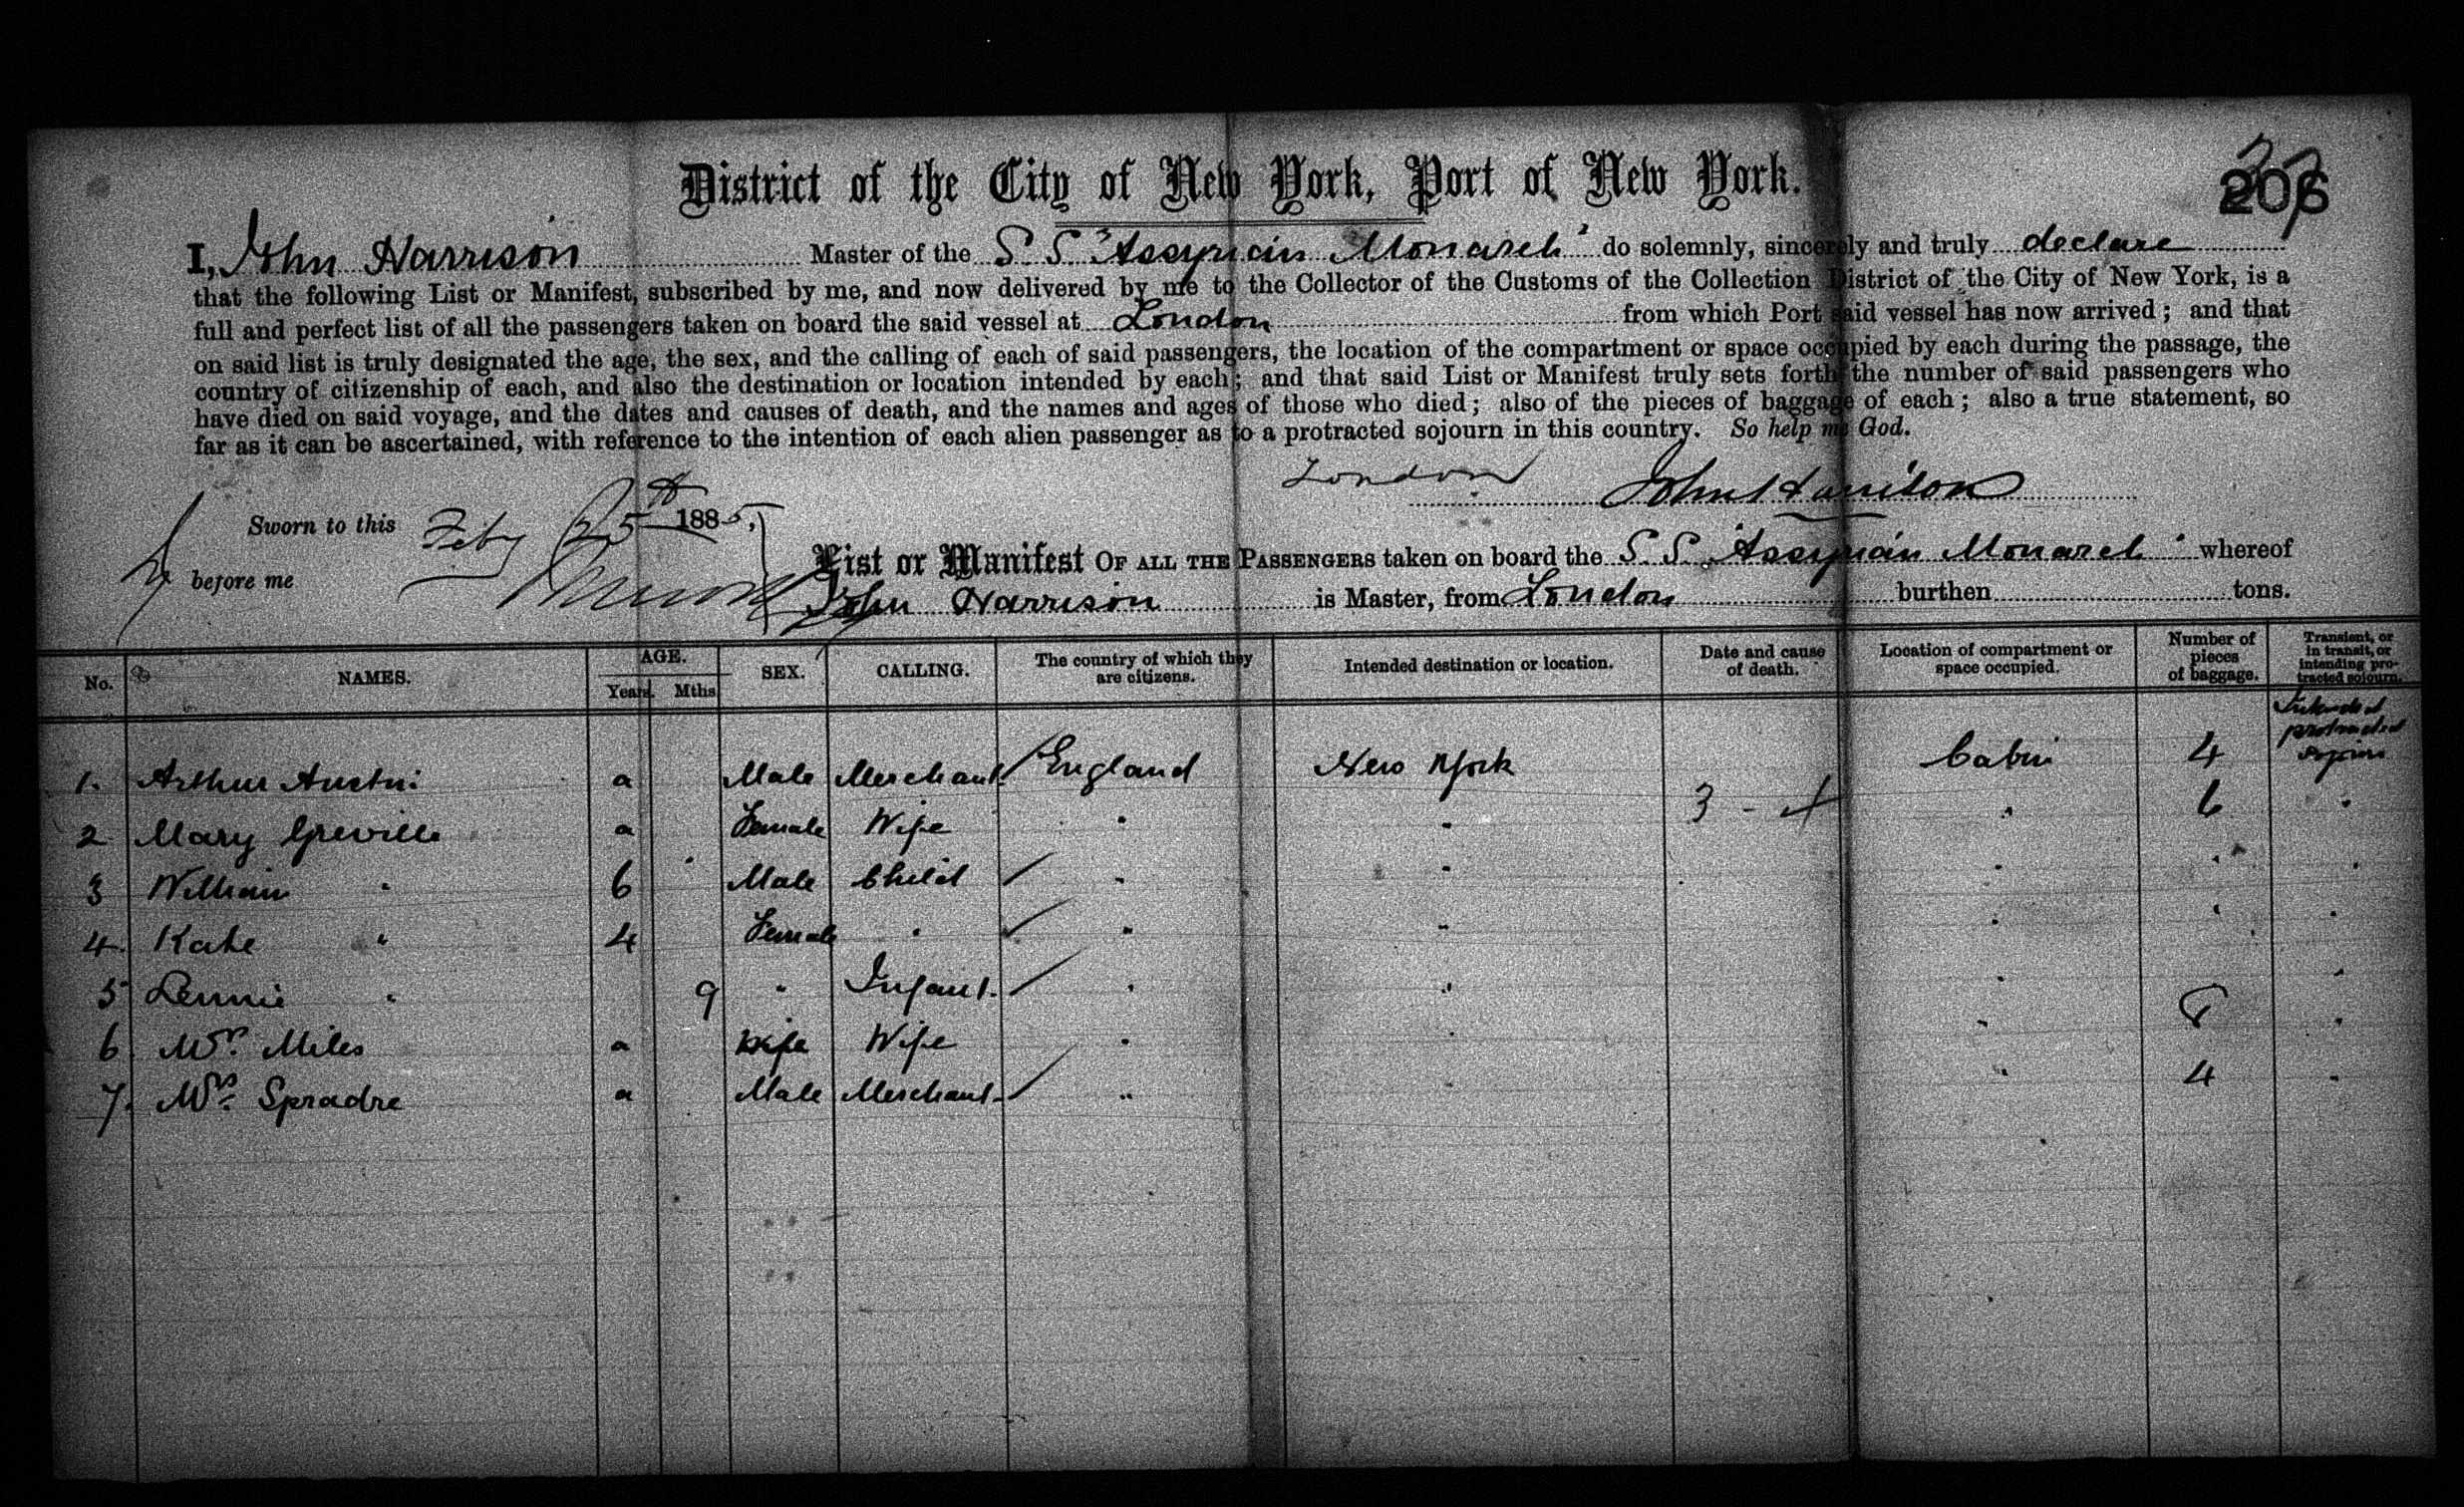 District of the City of New York, Port of New York.
206
I, John Harrison Master of the S. S. "Assyrian Monarch" do solemnly, sincerely and truly declare
that the following List or Manifest, subscribed by me, and now delivered by me to the Collector of the Customs of the Collection District of the City of New York, is a
full and perfect list of all the passengers taken on board the said vessel at London from which Port said vessel has now arrived; and that
on said list is truly designated the age, the sex, and the calling of each of said passengers, the location of the compartment or space occupied by each during the passage, the
country of citizenship of each, and also the destination or location intended by each; and that said List or Manifest truly sets forth the number of said passengers who
have died on said voyage, and the dates and causes of death, and the names and ages of those who died; also of the pieces of baggage of each; also a true statement, so
far as it can be ascertained, with reference to the intention of each alien passenger as to a protracted sojourn in this country. So help me God.
London John Harrison
Sworn to this Feby 25th 1885,
before me
List or Manifest OF ALL THE PASSENGERS taken on board the S. S. "Assyrian Monarch" whereof
John Harrison is Master, from London burthen tons.
No. NAMES. AGE. Years. Mths SEX. CALLING. The country of which they are citizens. Intended destination or location. Date and cause of death. Location of compartment or space occupied. Number of pieces of baggage. Transient, or in transit, or intending protracted sojourn.
Intended protracted sojourn
1. Arthur Austin a Male Merchant England New York Cabin 4
3 - 4
2 Mary Greville a Female Wife " " " 6 "
3 William " 6 Male Child " " " " "
4. Kate " 4 Female " " " " " "
5 Lennie " 9 " Infant. " " " "
6 Mrs. Miles a Wife Wife " " " 8 "
7. Mrs. Spradre a Male Merchant " " " 4 "